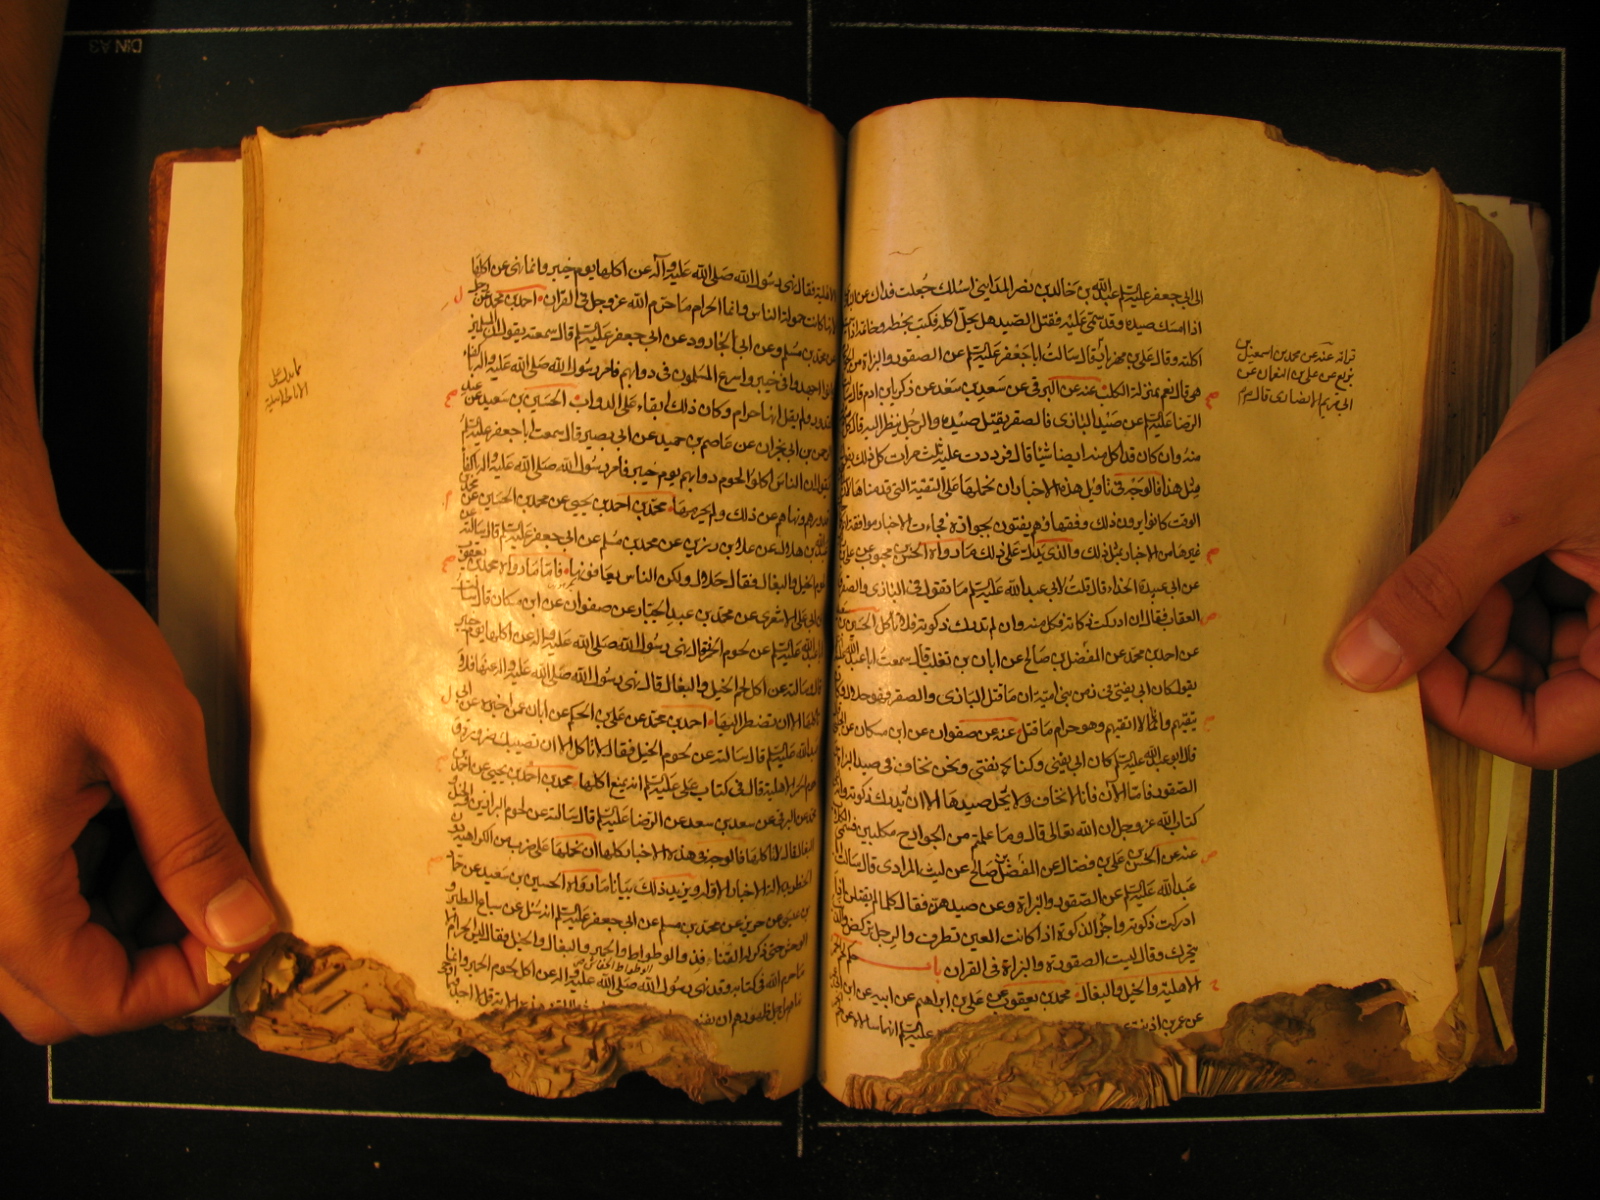 الى ابى جعفر عليه السلم عبد الله بن خالد بن نصر المداينى اسئلك جعلت فداك عن البازى
اذا امسك صيده وقد سمى عليه فقتل الصيد هل يحل اكله فكتب بخطه وخاتمه اذا سميته
اكلته وقال على بن مهزيار قال سالت ابا جعفر عليه السلم عن الصقور والبزاة من الجوارح
هى قال نعم بمنزلة الكلاب عنه عن البرقى عن سعد بن سعد عن زكريا بن ادم قال سالت
الرضا عليه السلم عن صيد البازى والصقر يقتل صيده والرجل ينظر اليه قال كل
منه وان كان قد اكل منه ايضا شيئا قال فرددت عليه ثلث مرات كل ذلك يقول
مثل هذا فالوجه فى تاويل هذه الاخبار ان نحملها على التقية التى قدمناها لان
الوقت كانوا يرون ذلك وفقهاؤهم يفتون بجوازه فجاءت الاخبار موافقة
غيرها من الاخبار بمثل ذلك والذى يدل على ذلك ما رواه الحسن بن محبوب عن على بن
عن ابى عبيدة الحذاء قال قلت لابى عبد الله عليه السلم ما تقول فى البازى والصقر
العقاب فقال ان ادركت ذكاته فكل منه وان لم تدرك ذكوته فلا تاكل الحسين بن
عن احمد بن محمد عن المفضل بن صالح عن ابان بن تغلب قال سمعت ابا عبد الله عليه
يقول كان ابى يفتى فى زمن بنى امية ان ما قتل البازى والصقر فهو حلال وكان
يتقيهم وانا لا اتقيهم وهو حرام ما قتل عنه عن صفوان عن ابن مسكان عن الحلبى
قال ابو عبد الله عليه السلم كان ابى يفتى وكنا نفتى ونحن نخاف فى صيد البزاة
الصقور فاما الان فانا لا نخاف ولا يحل صيدها الا ان تدرك ذكوته وانه
كتاب الله عز وجل ان الله تعالى قال وما علمتم من الجوارح مكلبين فسمى الكلاب
عنه عن الحسن بن على بن فضال عن المفضل بن صالح عن ليث المرادى قال سالت ابا
عبد الله عليه السلم عن الصقور والبزاة وعن صيدهن فقال كلما لم يقتلن اذا
ادركت ذكوته واخر الذكوة اذا كانت العين تطرف والرجل تركض والذنب
يتحرك وقال ليست الصقورة والبزاة فى القران باب حكم لحم الحمر
الاهلية والخيل والبغال محمد بن يعقوب عن على بن ابراهيم عن ابيه عن ابن ابى
عن عمر بن اذينة عليه السلم انهما سالاه عن
قراته عنه عن محمد بن اسمعيل بن
بزيع عن على بن النعمان عن
ابى مريم الانصارى قال
الاهلية فقال نهى رسول الله صلى الله عليه وآله عن اكلها يوم خيبر وانما نهى عن اكلها
لانها كانت حمولة الناس وانما الحرام ما حرم الله عز وجل فى القران احمد بن محمد عن رجل
عن محمد بن مسلم وعن ابى الجارود عن ابى جعفر عليه السلم قال سمعته يقول ان المسلمين
كانوا اجهدوا فى خيبر واسرع المسلمون فى دوابهم فامر رسول الله صلى الله عليه واله باكفاء
القدور ولم يقل انها حرام وكان ذلك ابقاء على الدواب الحسين بن سعيد عن عبد
الرحمن بن ابى نجران عن عاصم بن حميد عن ابى بصير قال سمعت ابا جعفر عليه السلم
يقول ان الناس اكلوا لحوم دوابهم يوم خيبر فامر رسول الله صلى الله عليه واله باكفاء
قدورهم ونهاهم عن ذلك ولم يحرمها محمد بن احمد بن يحيى عن محمد بن الحسين عن محمد
بن عبد الله بن هلال عن علا بن رزين عن محمد بن مسلم عن ابى جعفر عليه السلم قال سالته عن
لحوم الخيل والبغال فقال حلال ولكن الناس يعافونها فاما ما رواه محمد بن يعقوب
عن ابى على الاشعرى عن محمد بن عبد الجبار عن صفوان عن ابن مسكان قال سالت
ابا عبد الله عليه السلم عن لحوم الحمر فقال نهى رسول الله صلى الله عليه واله عن اكلها يوم خيبر
قال وسالته عن اكل لحم الخيل والبغال قال نهى رسول الله صلى الله عليه واله عنها فلا
تاكلها الا ان تضطر اليها احمد بن محمد عن على بن الحكم عن ابان عمن اخبره عن ابى
عبد الله عليه السلم قال سالته عن لحوم الخيل فقال لا تاكل الا ان تصيبك ضرورة و
لحوم الحمر الاهلية قال فى كتاب على عليه السلم انه يمنع اكلها محمد بن احمد بن يحيى عن احمد بن
محمد عن البرقى عن سعد بن سعد عن الرضا عليه السلم قال سالته عن لحوم البراذين والخيل و
البغال فقال لا تاكلها فالوجه فى هذه الاخبار كلها ان نحملها على ضرب من الكراهية دون
الحظر بدلالة الاخبار الاولة ويزيد ذلك بيانا ما رواه الحسين بن سعيد عن حماد
بن عيسى عن حريز عن محمد بن مسلم عن ابى جعفر عليه السلم انه سئل عن سباع الطير و
الوحش حتى ذكر له القنافذ والوطواط والحمير والبغال والخيل فقال ليس الحرام الا
الوطواط الخفاش
ما حرم الله فى كتابه وقد نهى رسول الله صلى الله عليه واله عن اكل لحوم الحمير وانما
نهاهم من اجل ظهورهم ان يفنى